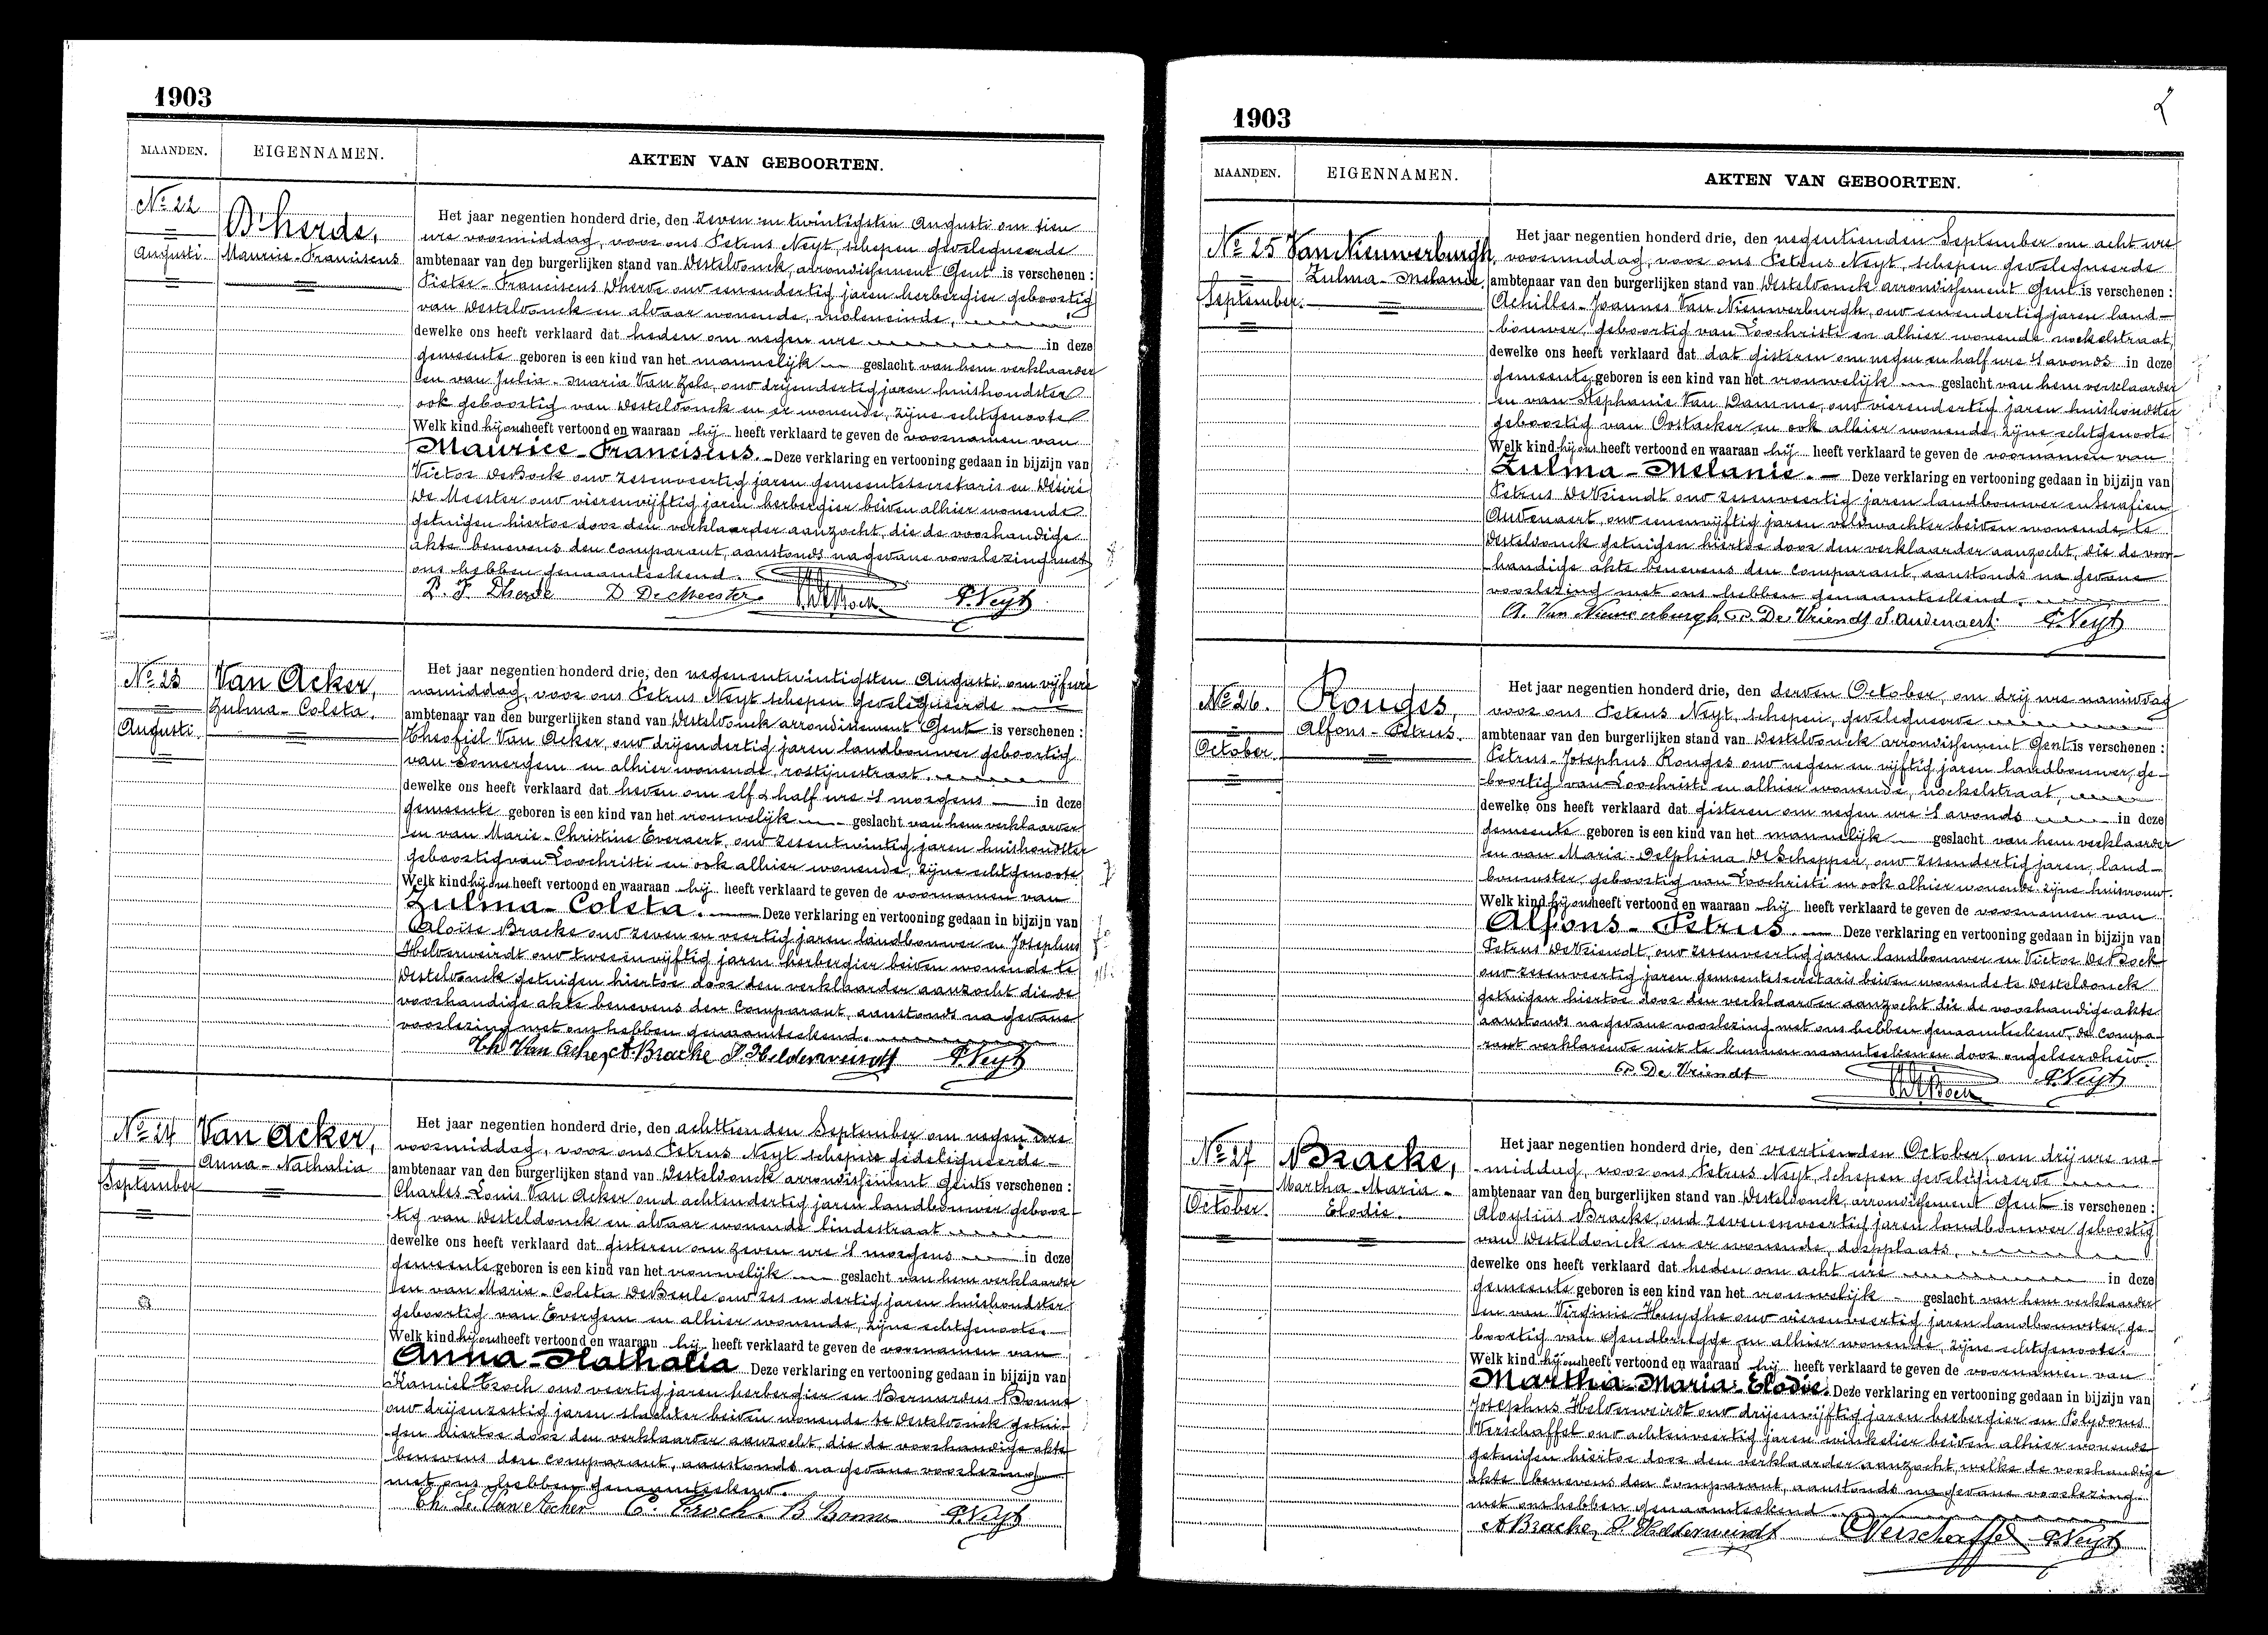 1903
MAANDEN. EIGENNAMEN. AKTEN VAN GEBOORTEN.
No 22
Augusti
D'herde,
Maurice-Franciscus
Het jaar negentien honderd drie, den zeven en twintigsten Augusti om tien
ure voormiddag, voor ons Petrus Neyt, schepen gedelegueerde
ambtenaar van den burgerlijken stand van Desteldonck, arrondissement Gent is verschenen :
Pieter-Franciscus Dherde oud eenendertig jaren herbergier geboortig
van Desteldonck en aldaar wonende, moleneinde,
dewelke ons heeft verklaard dat heden om negen ure in deze
gemeente geboren is een kind van het mannelijk geslacht van hem verklaarder
en van Julia-Maria Van Hole, oud drijendertig jaren huishoudster
ook geboortig van Desteldonck en er wonende, zijne echtgenoote
Welk kind hij ons heeft vertoond en waaraan hij heeft verklaard te geven de voornamen van
Maurice-Franciscus. Deze verklaring en vertooning gedaan in bijzijn van
Victor DeBock oud zesenveertig jaren gemeentesecretaris en Désiré
De Meester oud vierenvijftig jaren herbergier beiden alhier wonende
getuigen hiertoe door den verklaarder aanzocht, die de voorhandige
akte benevens den comparant, aanstonds na gedane voorlezing met
ons hebben genaamteekend.
P. F. Dherde D. De Meester V. DeBock P. Neyt
No 23
Augusti
Van Acker,
Zulma-Coleta.
Het jaar negentien honderd drie, den negenentwintigsten Augusti om vijf ure
namiddag, voor ons Petrus Neyt schepen gedelegueerde
ambtenaar van den burgerlijken stand van Desteldonck arrondissement Gent is verschenen :
Theofiel Van Acker, oud drijendertig jaren landbouwer geboortig
van Somergem en alhier wonende, rostijnestraat.
dewelke ons heeft verklaard dat heden om elf & half ure 's morgens in deze
gemeente geboren is een kind van het vrouwelijk geslacht van hem verklaarder
en van Marie-Christine Everaert, oud zesentwintig jaren huishoudster
geboortig van Loochristi en ook alhier wonende, zijne echtgenoote
Welk kind hij ons heeft vertoond en waaraan hij heeft verklaard te geven de voornamen van
Zulma-Coleta. Deze verklaring en vertooning gedaan in bijzijn van
Aloïse Bracke oud zeven en veertig jaren landbouwer en Josephus
Helderweirdt oud tweeenvijftig jaren herbergier beiden wonende te
Desteldonck getuigen hiertoe door den verklaarder aanzocht die de
voorhandige akte benevens den comparant, aanstonds na gedane
voorlezing met ons hebben genaamteekend.
Th. Van Acker, A. Bracke J. Helderweirdt P. Neyt
No 24
September
Van Acker,
Anna-Nathalia
Het jaar negentien honderd drie, den achttienden September om negen ure
voormiddag, voor ons Petrus Neyt schepene gedelegueerde
ambtenaar van den burgerlijken stand van Desteldonck arrondissement Gent is verschenen :
Charles-Louis Van Acker oud achtendertig jaren landbouwer geboor-
tig van Desteldonck en aldaar wonende lindestraat
dewelke ons heeft verklaard dat gisteren om zeven ure 's morgens in deze
gemeente geboren is een kind van het vrouwelijk geslacht van hem verklaarder
en van Marie-Coleta DeBeule oud zes en dertig jaren huishoudster
geboortig van Evergem en alhier wonende, zijne echtgenoote.
Welk kind hij ons heeft vertoond en waaraan hij heeft verklaard te geven de voornamen van
Anna-Nathalia Deze verklaring en vertooning gedaan in bijzijn van
Kamiel Croch oud veertig jaren herbergier en Bernardus Bonne
oud drijenzestig jaren slachter beiden wonende te Desteldonck getui-
gen hiertoe door den verklaarder aanzocht, die de voorhandige akte
benevens den comparant, aanstonds na gedane voorlezing
met ons hebben genaamteekend.
Ch. L. Van Acker C. Croch. B Bonne P. Neyt
1903
MAANDEN. EIGENNAMEN. AKTEN VAN GEBOORTEN.
No 25
September.
Van Nieuwerburgh,
Zulma-Melanie,
Het jaar negentien honderd drie, den negentienden September om acht ure
voormiddag, voor ons Petrus Neyt, schepen gedelegueerde
ambtenaar van den burgerlijken stand van Desteldonck arrondissement Gent is verschenen :
Achilles-Joannes Van Nieuwerburgh, oud eenendertig jaren land-
bouwer, geboortig van Loochristi en alhier wonende nockelstraat,
dewelke ons heeft verklaard dat dat gisteren om negen en half ure 's avonds in deze
gemeente geboren is een kind van het vrouwelijk geslacht van hem verklaarder
en van Stephanie Van Damme, oud vierendertig jaren huishoudster
geboortig van Oostacker en ook alhier wonende, zijne echtgenoote
Welk kind hij ons heeft vertoond en waaraan hij heeft verklaard te geven de voornamen van
Zulma-Melanie. Deze verklaring en vertooning gedaan in bijzijn van
Petrus DeVriendt oud zesenveertig jaren landbouwer en Serafien
Audenaert, oud eenenvijftig jaren veldwachter beiden wonende te
Desteldonck getuigen hiertoe door den verklaarder aanzocht, die de voor-
handige akte benevens den comparant, aanstonds na gedane
voorlezing met ons hebben genaamteekend.
A. Van Nieuwerburgh, P. De Vriendt S. Audenaert. P. Neyt
No 26.
October
Rouges,
Alfons-Petrus.
Het jaar negentien honderd drie, den derden October, om drij ure namiddag
voor ons Petrus Neyt, schepen, gedelegueerde
ambtenaar van den burgerlijken stand van Desteldonck arrondissement Gent is verschenen :
Petrus-Josephus Rouges oud negen en vijftig jaren landbouwer, ge-
boortig van Loochristi en alhier wonende, nockelstraat,
dewelke ons heeft verklaard dat gisteren om negen ure 's avonds in deze
gemeente geboren is een kind van het mannelijk geslacht van hem verklaarder
en van Maria-Delphina DeSchepper, oud zesendertig jaren, land-
bouwster, geboortig van Loochristi en ook alhier wonende zijne huisvrouw.
Welk kind hij ons heeft vertoond en waaraan hij heeft verklaard te geven de voornamen van
Alfons-Petrus. Deze verklaring en vertooning gedaan in bijzijn van
Petrus DeVriendt, oud zesenveertig jaren landbouwer en Victor DeBock
oud zesenveertig jaren gemeentesecretaris beiden wonende te Desteldonck
getuigen hiertoe door den verklaarder aanzocht die de voorhandige akte
aanstonds na gedane voorlezing met ons hebben genaamteekend, de compa-
rant verklarende niet te kunnen naamteekenen door ongeleerdheid.
P. De Vriendt V. DeBock P. Neyt
No 27
October.
Bracke,
Martha-Maria-
Elodie.
Het jaar negentien honderd drie, den veertienden October, om drij ure na-
middag, voor ons Petrus Neyt schepen gedelegueerde
ambtenaar van den burgerlijken stand van Desteldonck, arrondissement Gent is verschenen :
Aloysiüs Bracke, oud zevenenveertig jaren landbouwer geboortig
van Desteldonck en er wonende, dorpplaats,
dewelke ons heeft verklaard dat heden om acht ure in deze
gemeente geboren is een kind van het vrouwelijk geslacht van hem verklaarder
en van Virginie Huyghe oud vierenveertig jaren landbouwster, ge-
boortig van Gendbrugge en alhier wonende, zijne echtgenoote.
Welk kind hij ons heeft vertoond en waaraan hij heeft verklaard te geven de voornamen van
Martha-Maria-Elodie. Deze verklaring en vertooning gedaan in bijzijn van
Josephus Helderweirdt oud drijenvijftig jaren herbergier en Polydorus
Verschaffel oud achtenveertig jaren winkelier beiden alhier wonende
getuigen hiertoe door den verklaarder aanzocht, welke de voorhandige
akte benevens den comparant, aanstonds na gedane voorlezing
met ons hebben genaamteekend.
A Bracke, J. Helderweirdt P Verschaffel P. Neyt